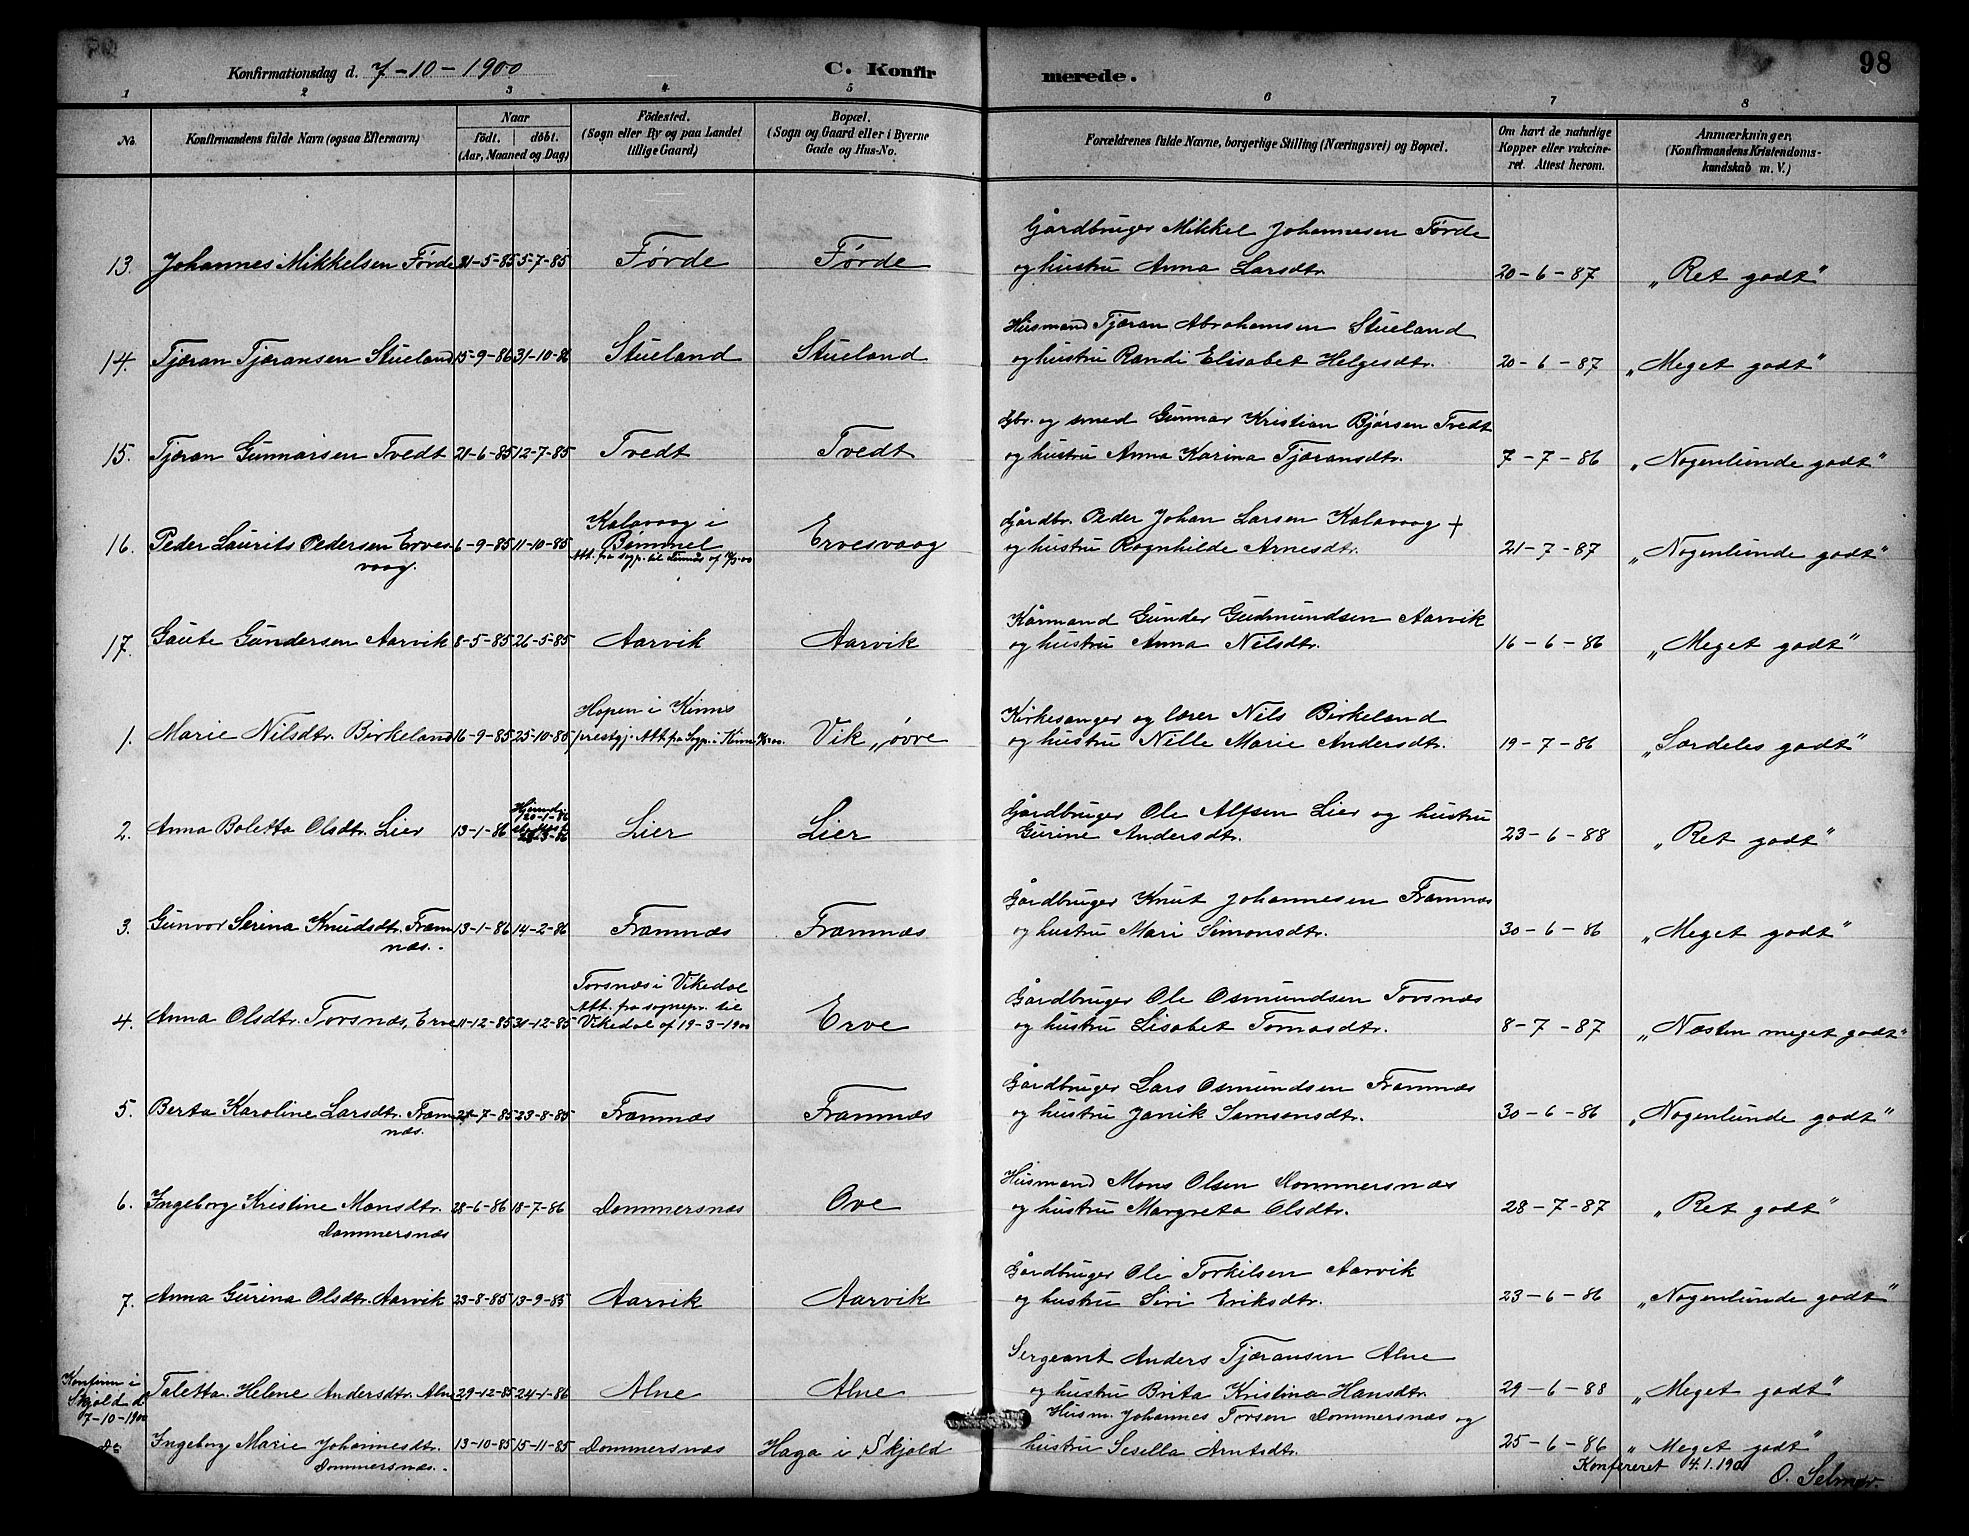 Konfirmationsdag d. 7-10-1900 C. Konfirmerede. 98
1 2 3 4 5 6 7 8
No. Konfirmandens fulde Navn (ogsaa Efternavn) Naar født. døbt. (Aar, Maaned og Dag) Fødested. (Sogn eller By og paa Landet tillige Gaard) Bopæl. (Sogn og Gaard eller i Byerne Gade og Hus-No. Forældrenes fulde Navne, borgerlige Stilling (Næringsvei) og Bopæl. Om havt de naturlige Kopper eller vakcineret. Attest herom. Anmærkninger. (Konfirmandens Kristendomskundskab m. V.)
Gårdbruger Mikkel Johannesen Førde
13. Johannes Mikkelsen Førde 21-5-85 5-7-85 Førde Førde og hustru Anna Larsdtr. 20-6-87 „Ret godt"
Husmand Tjæran Abrahamsen Stueland
14. Tjæran Tjæransen Stueland 15-9-86 31-10-86 Stueland Stueland og hustru Randi Elisabet Helgesdtr. 20-6-87 „Meget godt"
Gbr. og smed Gunnar Kristian Bjørsen Tvedt
15. Tjæran Gunnarsen Tvedt 21-6-85 12-7-85 Tvedt Tvedt og hustru Anna Karina Tjæransdtr. 7-7-86 „Nogenlunde godt"
Kalavaag i Gårdbr. Peder Johan Larsen Kalavaag +
16. Peder Laurits Pedersen Erves- 6-9-85 11-10-85 Bømmel Ervesvaag og hustru Ragnhilde Arnesdtr. 21-7-87 „Nogenlunde godt"
vaag. Att. fra sogp. til Finnås af
Kårmand Gunder Gudmundsen Aarvik
17. Gaute Gundersen Aarvik 8-5-85 26-5-85 Aarvik Aarvik og hustru Anna Nilsdtr. 16-6-86 „Meget godt"
Hopen i Kinns Kirkesanger og lærer Nils Birkeland
1. Marie Nilsdtr. Birkeland 16-9-85 25-10-85 prestgj. Att. fra Sogp. i Kinn Vik „øvre og hustru Nille Marie Andersdtr. 19-7-86 „Særdeles godt"
Hjemd. 20-1-86 Gårdbruger Ole Alfsen Lier og hustru
2. Anna Boletta Olsdtr. Lier 13-1-86 Lier Lier Gurine Andersdtr. 23-6-88 „Ret godt"
Gårdbruger Knut Johannesen Framnæs
3. Gunvor Serina Knudsdtr. Fram- 13-1-86 14-2-86 Framnæs Framnæs og hustru Mari Simonsdtr. 30-6-86 „Meget godt"
næs.
Torsnæs i Vikedal Gårdbruger Ole Osmundsen Torsnæs
Att. fra sognepr. til
4. Anna Olsdtr. Torsnæs, Erve 11-12-85 31-12-85 Vikedal af 19-3-1900 Erve og hustru Lisabet Tomasdtr. 8-7-87 „Næsten meget godt"
Gårdbruger Lars Osmundsen Framnæs
5. Berta Karoline Larsdtr. Fram- 27-7-85 23-8-85 Framnæs Framnæs og hustru Janik Samsonsdtr. 30-6-86 „Nogenlunde godt"
næs.
Husmand Mons Olsen Dommersnæs
6. Ingeborg Kristine Monsdtr. 28-6-86 18-7-86 Dommersnæs Ove og hustru Margreta Olsdtr. 28-7-87 „Ret godt"
Dommersnæs
Gårdbruger Ole Torkilsen Aarvik
7. Anna Gurina Olsdtr. Aarvik 23-8-85 13-9-85 Aarvik Aarvik og hustru Siri Eriksdtr. 23-6-86 „Nogenlunde godt"
Sergeant Anders Tjæransen Alne
Konfirm i Skjold d. 7-10-1900 Taletta Helene Andersdtr. Alne 29-12-85 24-1-86 Alne Alne og hustru Brita Kristina Hansdtr. 29-6-88 „Meget godt"
Husm. Johannes Torsen Dommersnæs og
Do Ingeborg Marie Johannesdtr. 13-10-85 15-11-85 Dommersnæs Haga i Skjold hustru Sesella Arntsdtr. 25-6-86 „Meget godt"
Dommersnæs. Konfereret 4.1.1901
O. Selmer.